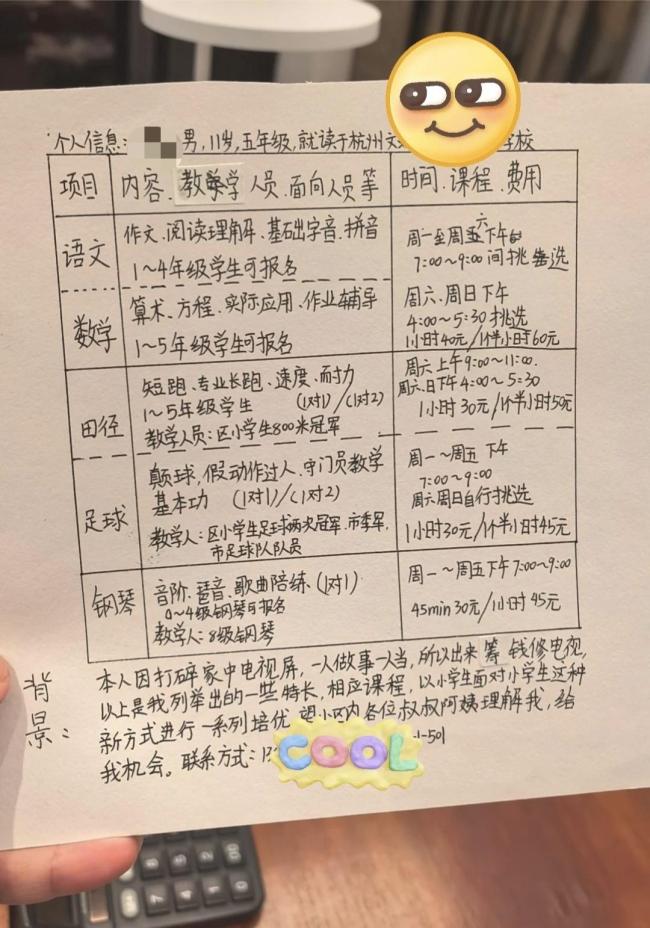 个人信息: 男,11岁,五年级,就读于杭州文 学校
项目 内容、教学人员、面向人员等 时间、课程、费用
语文
作文、阅读理解、基础字音、拼音
1~4年级学生可报名
周一至周六下午
7:00~9:00间挑选
数学
算术、方程、实际应用、作业辅导
1~5年级学生可报名
周六、周日下午
4:00~5:30挑选
1小时40元/1个半小时60元
田径
短跑、专业长跑、速度、耐力
1~5年级学生 (1对1)/(1对2)
教学人员:区小学生800米冠军
周六上午9:00~11:00.
周六、日下午4:00~5:30
1小时30元/1个半小时50元
足球
颠球,假动作过人、守门员教学
基本功 (1对1)/(1对2)
教学人:区小学生足球两次冠军、市季军,
市足球队队员
周一~周五下午
7:00~9:00
周六周日自行挑选
1小时30元/1个半小时45元
钢琴
音阶、琶音、歌曲陪练、(1对1)
0~4级钢琴可报名
教学人:8级钢琴
周一~周五下午7:00~9:00
45min30元/1小时45元
背景:
本人因打碎家中电视屏,一人做事一人当,所以出来筹钱修电视,
以上是我列举出的一些特长,相应课程,以小学生面对小学生这种
新方式进行一系列培优,望小区内各位叔叔阿姨理解我,给
我机会。联系方式:13 1-501
COOL